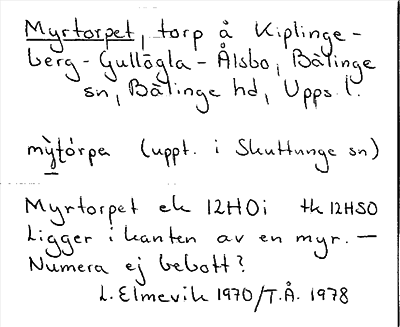 Myrtorpet, torp å Kiplinge-
berg - Gullögla - Ålsbo, Bälinge
sn, Bälinge hd, Upps. l.
mỳtórpa (uppt. i Skuttunge sn)
Myrtorpet ek 12H0i tk 12HSO
Ligger i kanten av en myr. —
Numera ej bebott?
L. Elmevik 1970/T.Å. 1978